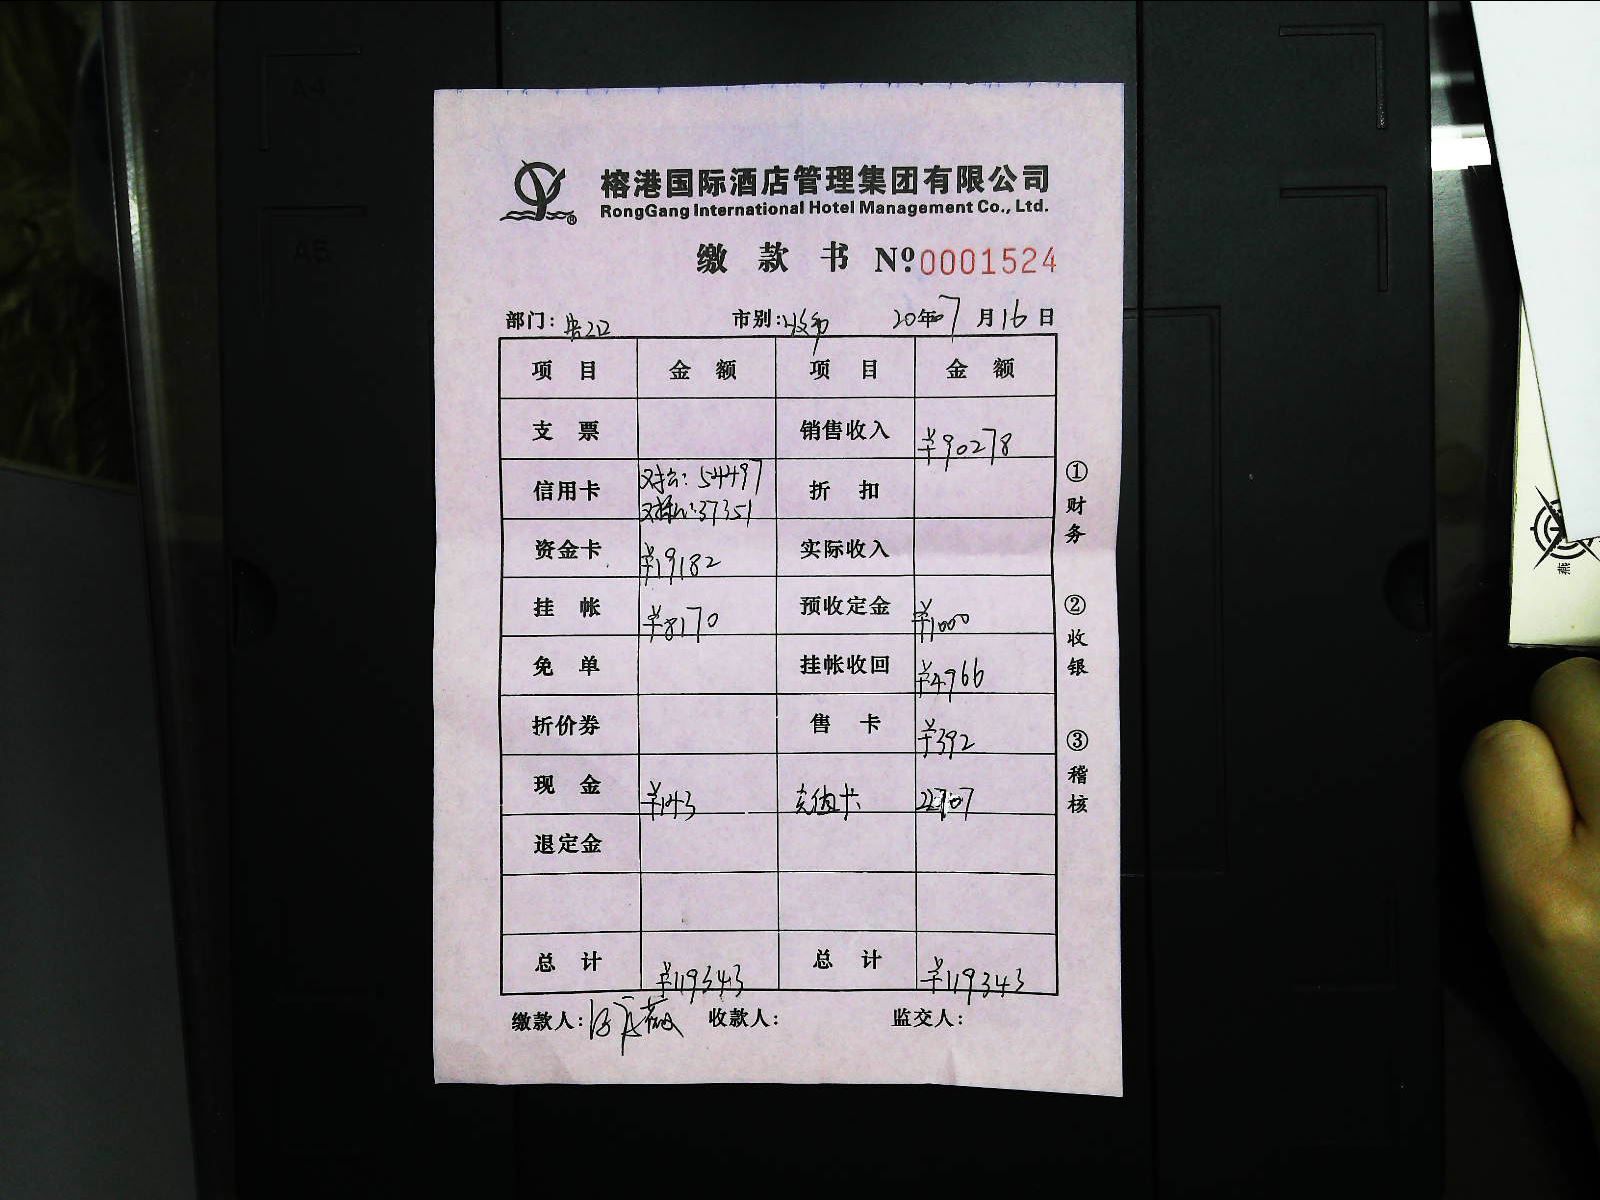 A4
A5
榕港国际酒店管理集团有限公司
RongGang International Hotel Management Co., Ltd.
缴款书 №0001524
部门: 市别: 20年7月16日
项目 金额 项目 金额
支票 销售收入 ¥90278
信用卡 对公: 54497 折扣
37351
资金卡 ¥19182 实际收入
挂帐 ¥8170 预收定金 ¥1000
免单 挂帐收回 ¥4966
折价券 售卡 ¥392
现金 ¥143 充值卡 22707
退定金
总计 ¥119343 总计 ¥119343
缴款人: 收款人: 监交人:
①财务
②收银
③稽核
燕